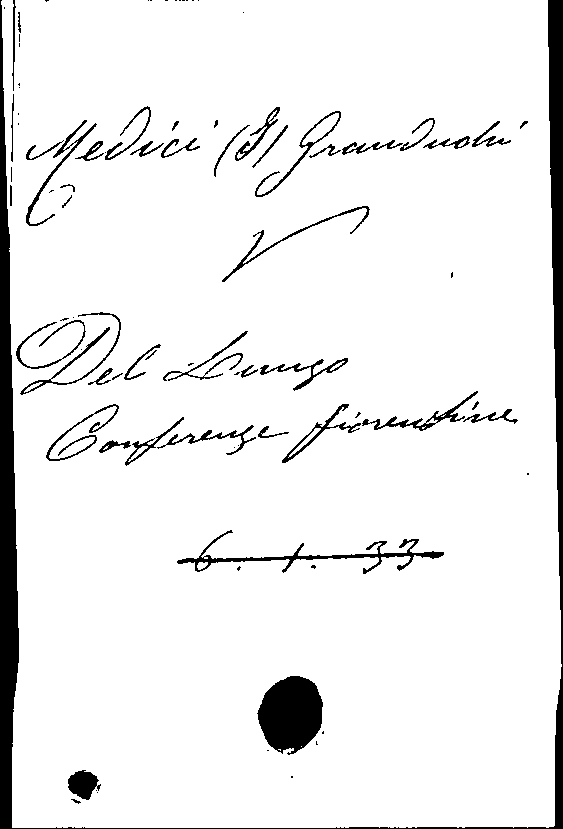 Medici (I) Granduchi
V
Del Lungo
Conferenze fiorentine
6. 1. 33